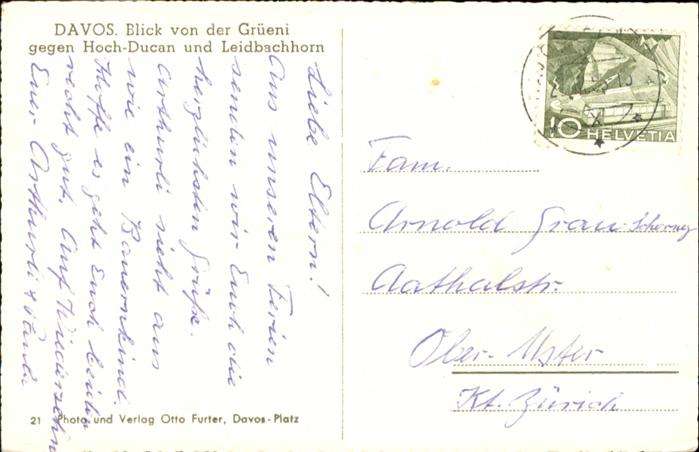 DAVOS. Blick von der Grüeni
gegen Hoch-Ducan und Leidbachhorn
Liebe Eltern!
Aus unseren Ferien
senden wir Euch die
herzlichsten Grüße.
Arthurli sieht aus
wie ein Bauernkind.
Hoffe es geht Euch beiden
recht gut. Auf Wiedersehn
Euer Arthurli &
10 HELVETIA
Fam.
Arnold Grau-
Aathalstr.
Ober-Uster
Kt. Zürich
21 Photo und Verlag Otto Furter, Davos-Platz